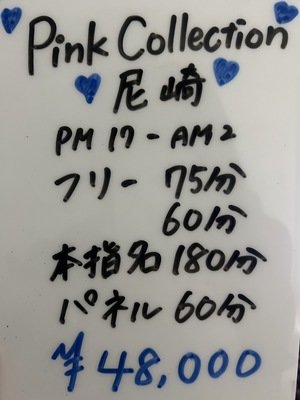 Pink Collection
尼崎
PM 17 - AM 2
フリー 75分
60分
本指名 180分
パネル 60分
¥48,000